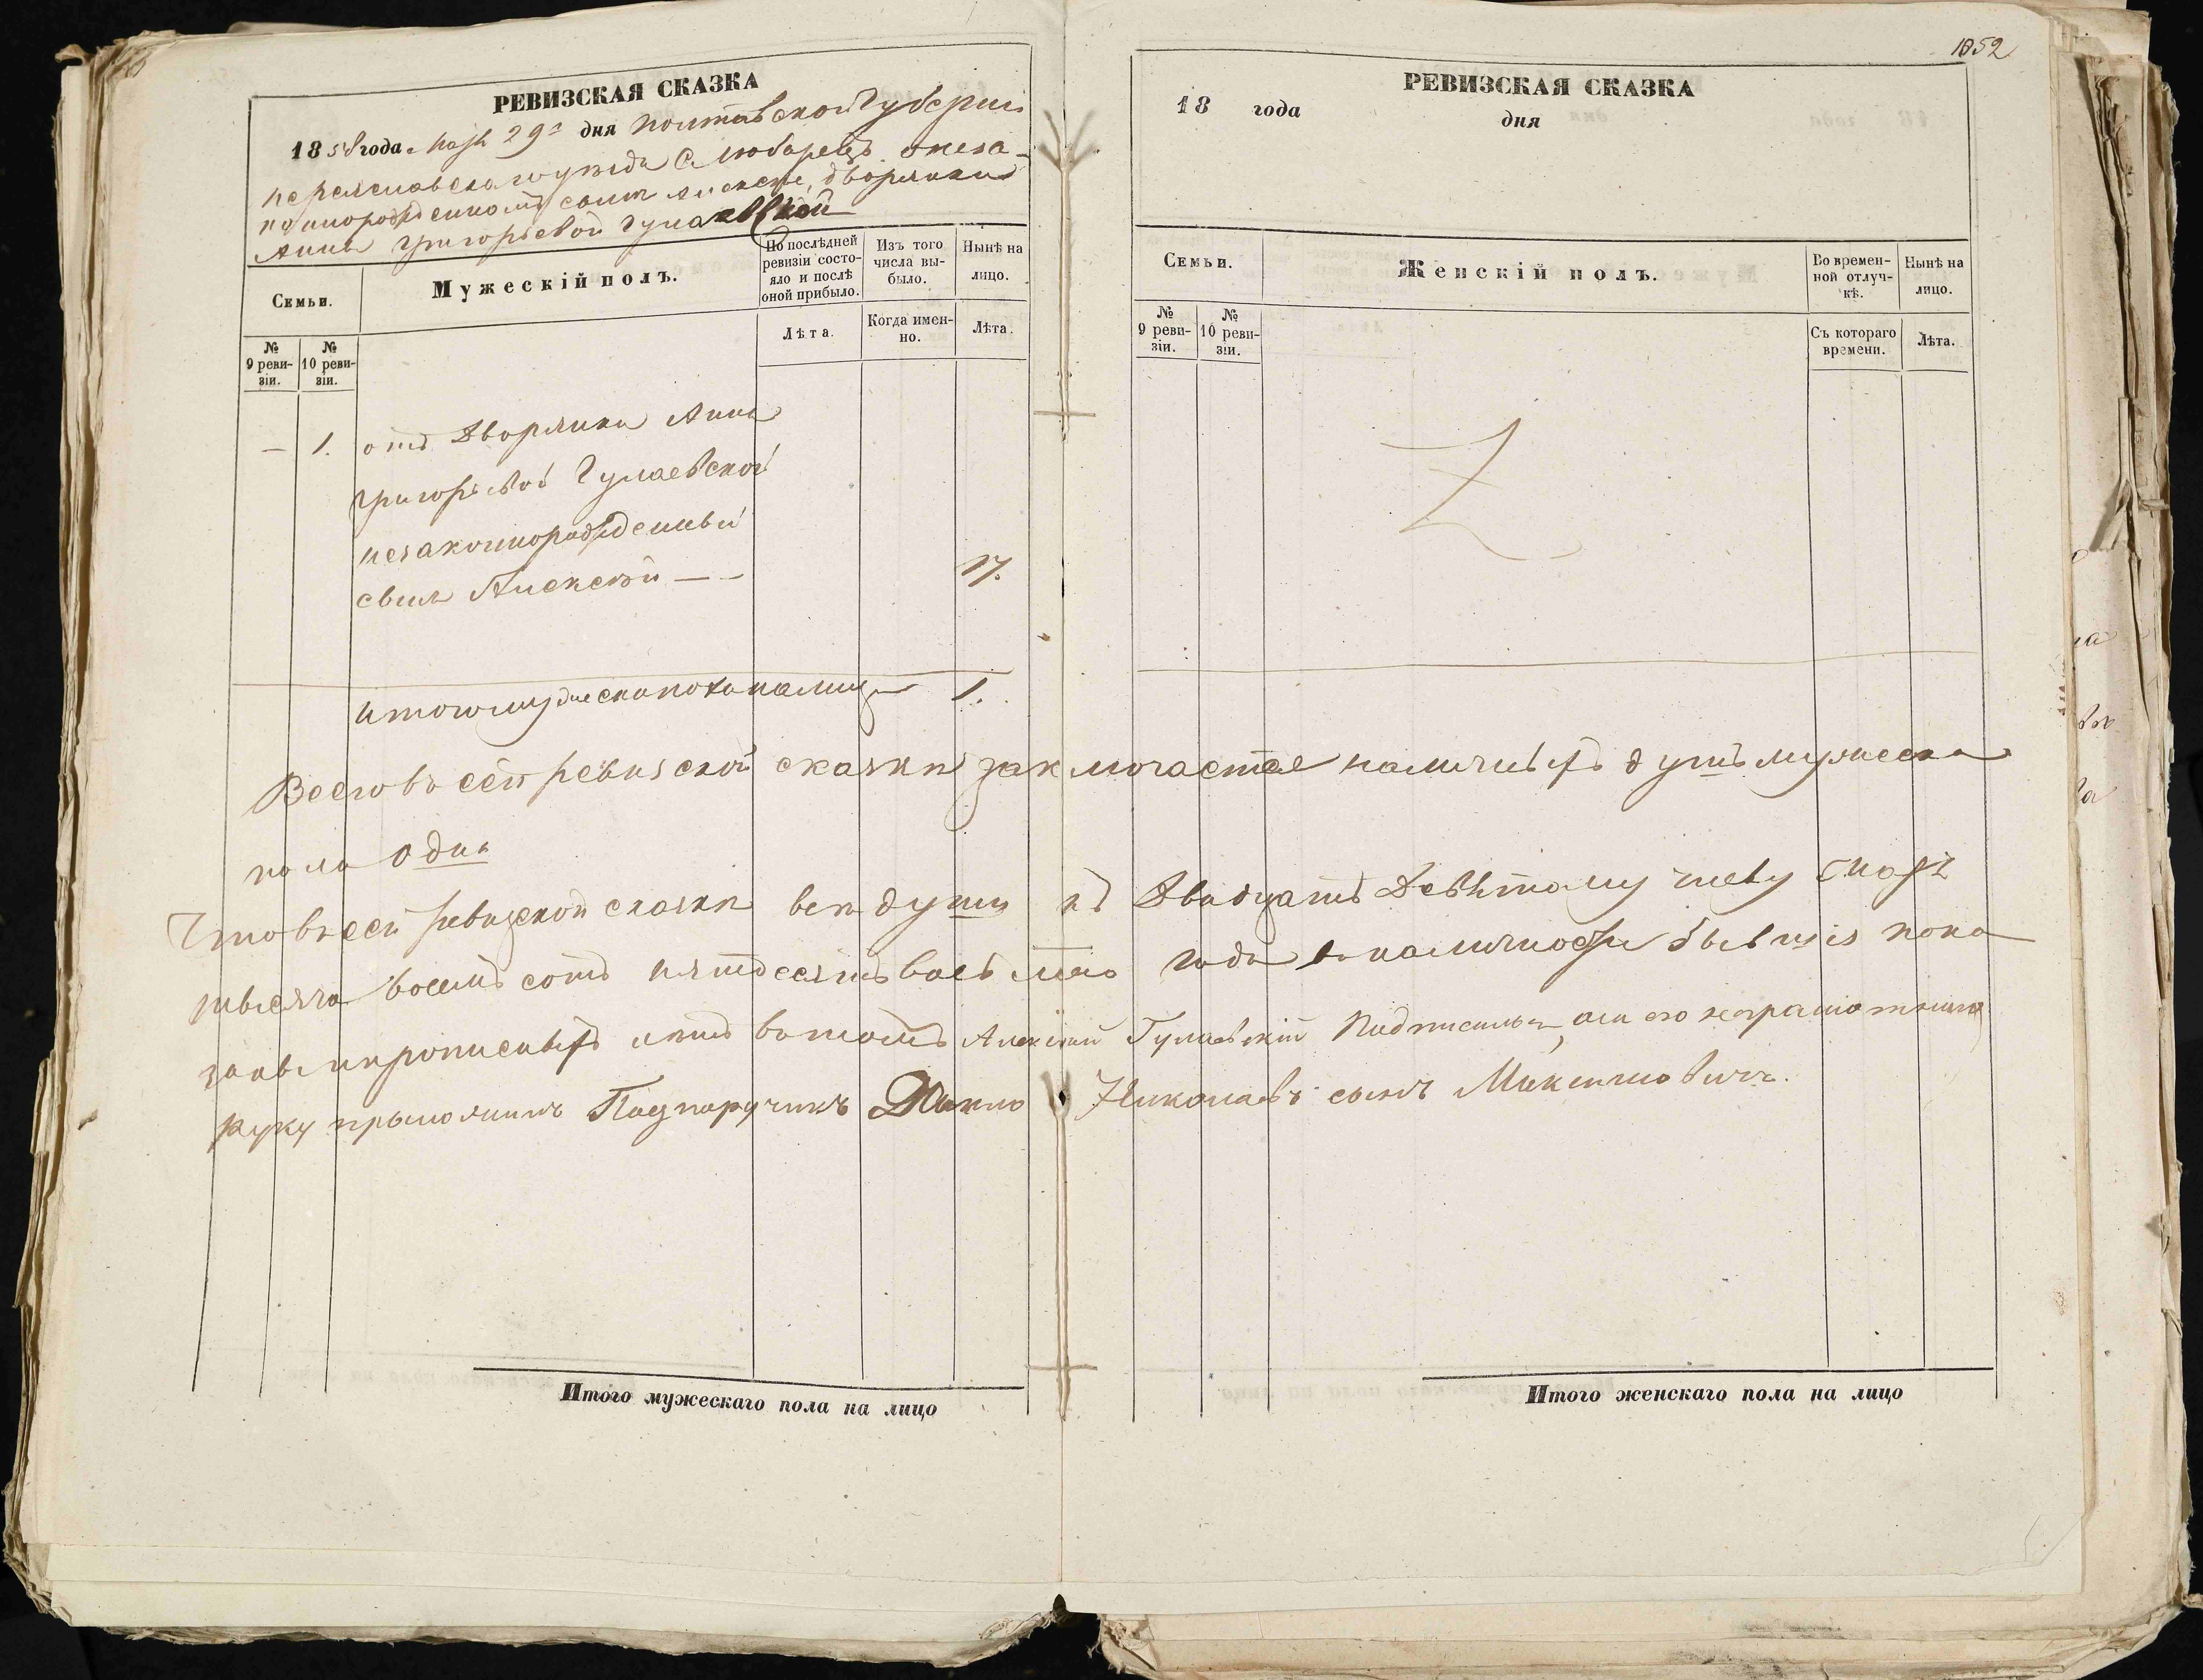 РЕВИЗСКАЯ СКАЗКА
1858 года Мая 29го дня Полтавской Губерніи
Переяславскаго уезда С Любарецъ онеза-
коннорожденномъ сыне Алексее, дворянки
Анны Григорьевой Гулаевской
Семьи.
Мужескій полъ.
По послѣдней ревизіи состояло и послѣ оной прибыло.
Изъ того числа выбыло.
Ныне на лицо.
№ 9 ревизіи.
№ 10 ревизіи.
Лѣта.
Когда именно.
Лѣта.
— 1. отъ Дворянки Анны
Григорьевой Гулаевской
незаконнорожденный
сынъ Алексѣй — — 17.
Итого мужеска пола налицо 1.
1052
РЕВИЗСКАЯ СКАЗКА
18 года дня
Семьи.
Женскій полъ.
Во временной отлучкѣ.
Нынѣ на лицо.
№ 9 ревизіи.
№ 10 ревизіи.
Съ котораго времени.
Лѣта.
Всего въ сей ревизской сказки заключается наличныхъ душъ мужеска
пола одна
Что въ сей ревизской сказки все души къ Двадцать Девятому числу Мая
тысяча восемь сотъ пятдесятъ восьмаго года в наличности бывшія пока
заны и прописныхъ нетъ в томъ Алексѣй Гулаевскій Подписался, а за его неграмотнаго
руку прыложилъ Подпоручикъ Николаевъ сынъ Максимовичъ.
Итого мужескаго пола на лицо
Итого женскаго пола на лицо